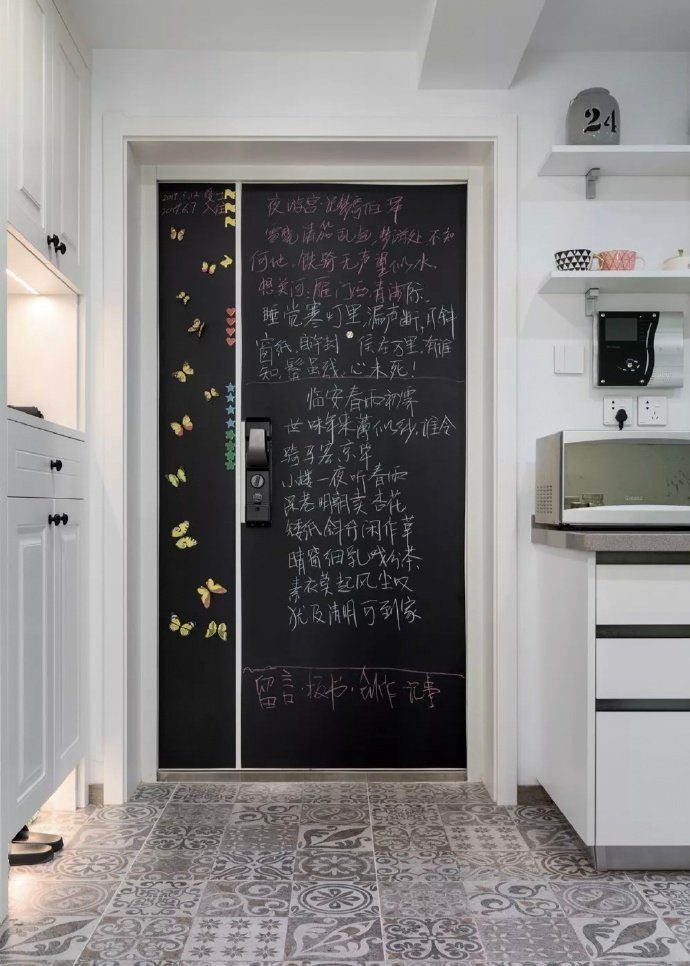 2019.5.12
2019.6.9 入住
夜游宫 记梦寄伯军
雪晓清笳乱起,梦游处不知
何地,铁骑无声望似水,
想关河:雁门西,青海际.
睡觉寒灯里,漏声断,月斜
窗纸,自许封侯在万里,有谁
知,鬓虽残,心未死!
临安春雨初霁
世味年来薄似纱,谁令
骑马客京华
小楼一夜听春雨
深巷明朝卖杏花
矮纸斜行闲作草
晴窗细乳戏分茶
素衣莫起风尘叹
犹及清明可到家
留言·板书·创作·记事
24